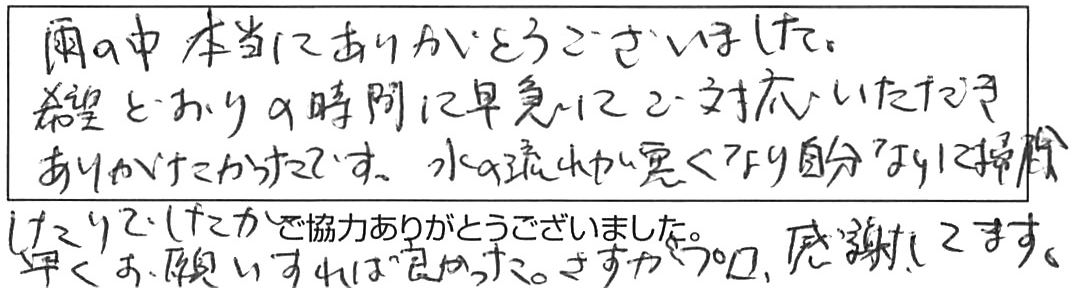 雨の中 本当にありがとうございました。
希望どおりの時間に早急にご対応いただき
ありがたかったです。水の流れが悪くなり自分なりに掃除
したりでしたが
ご協力ありがとうございました。
早くお願いすれば良かった。さすがプロ、感謝してます。